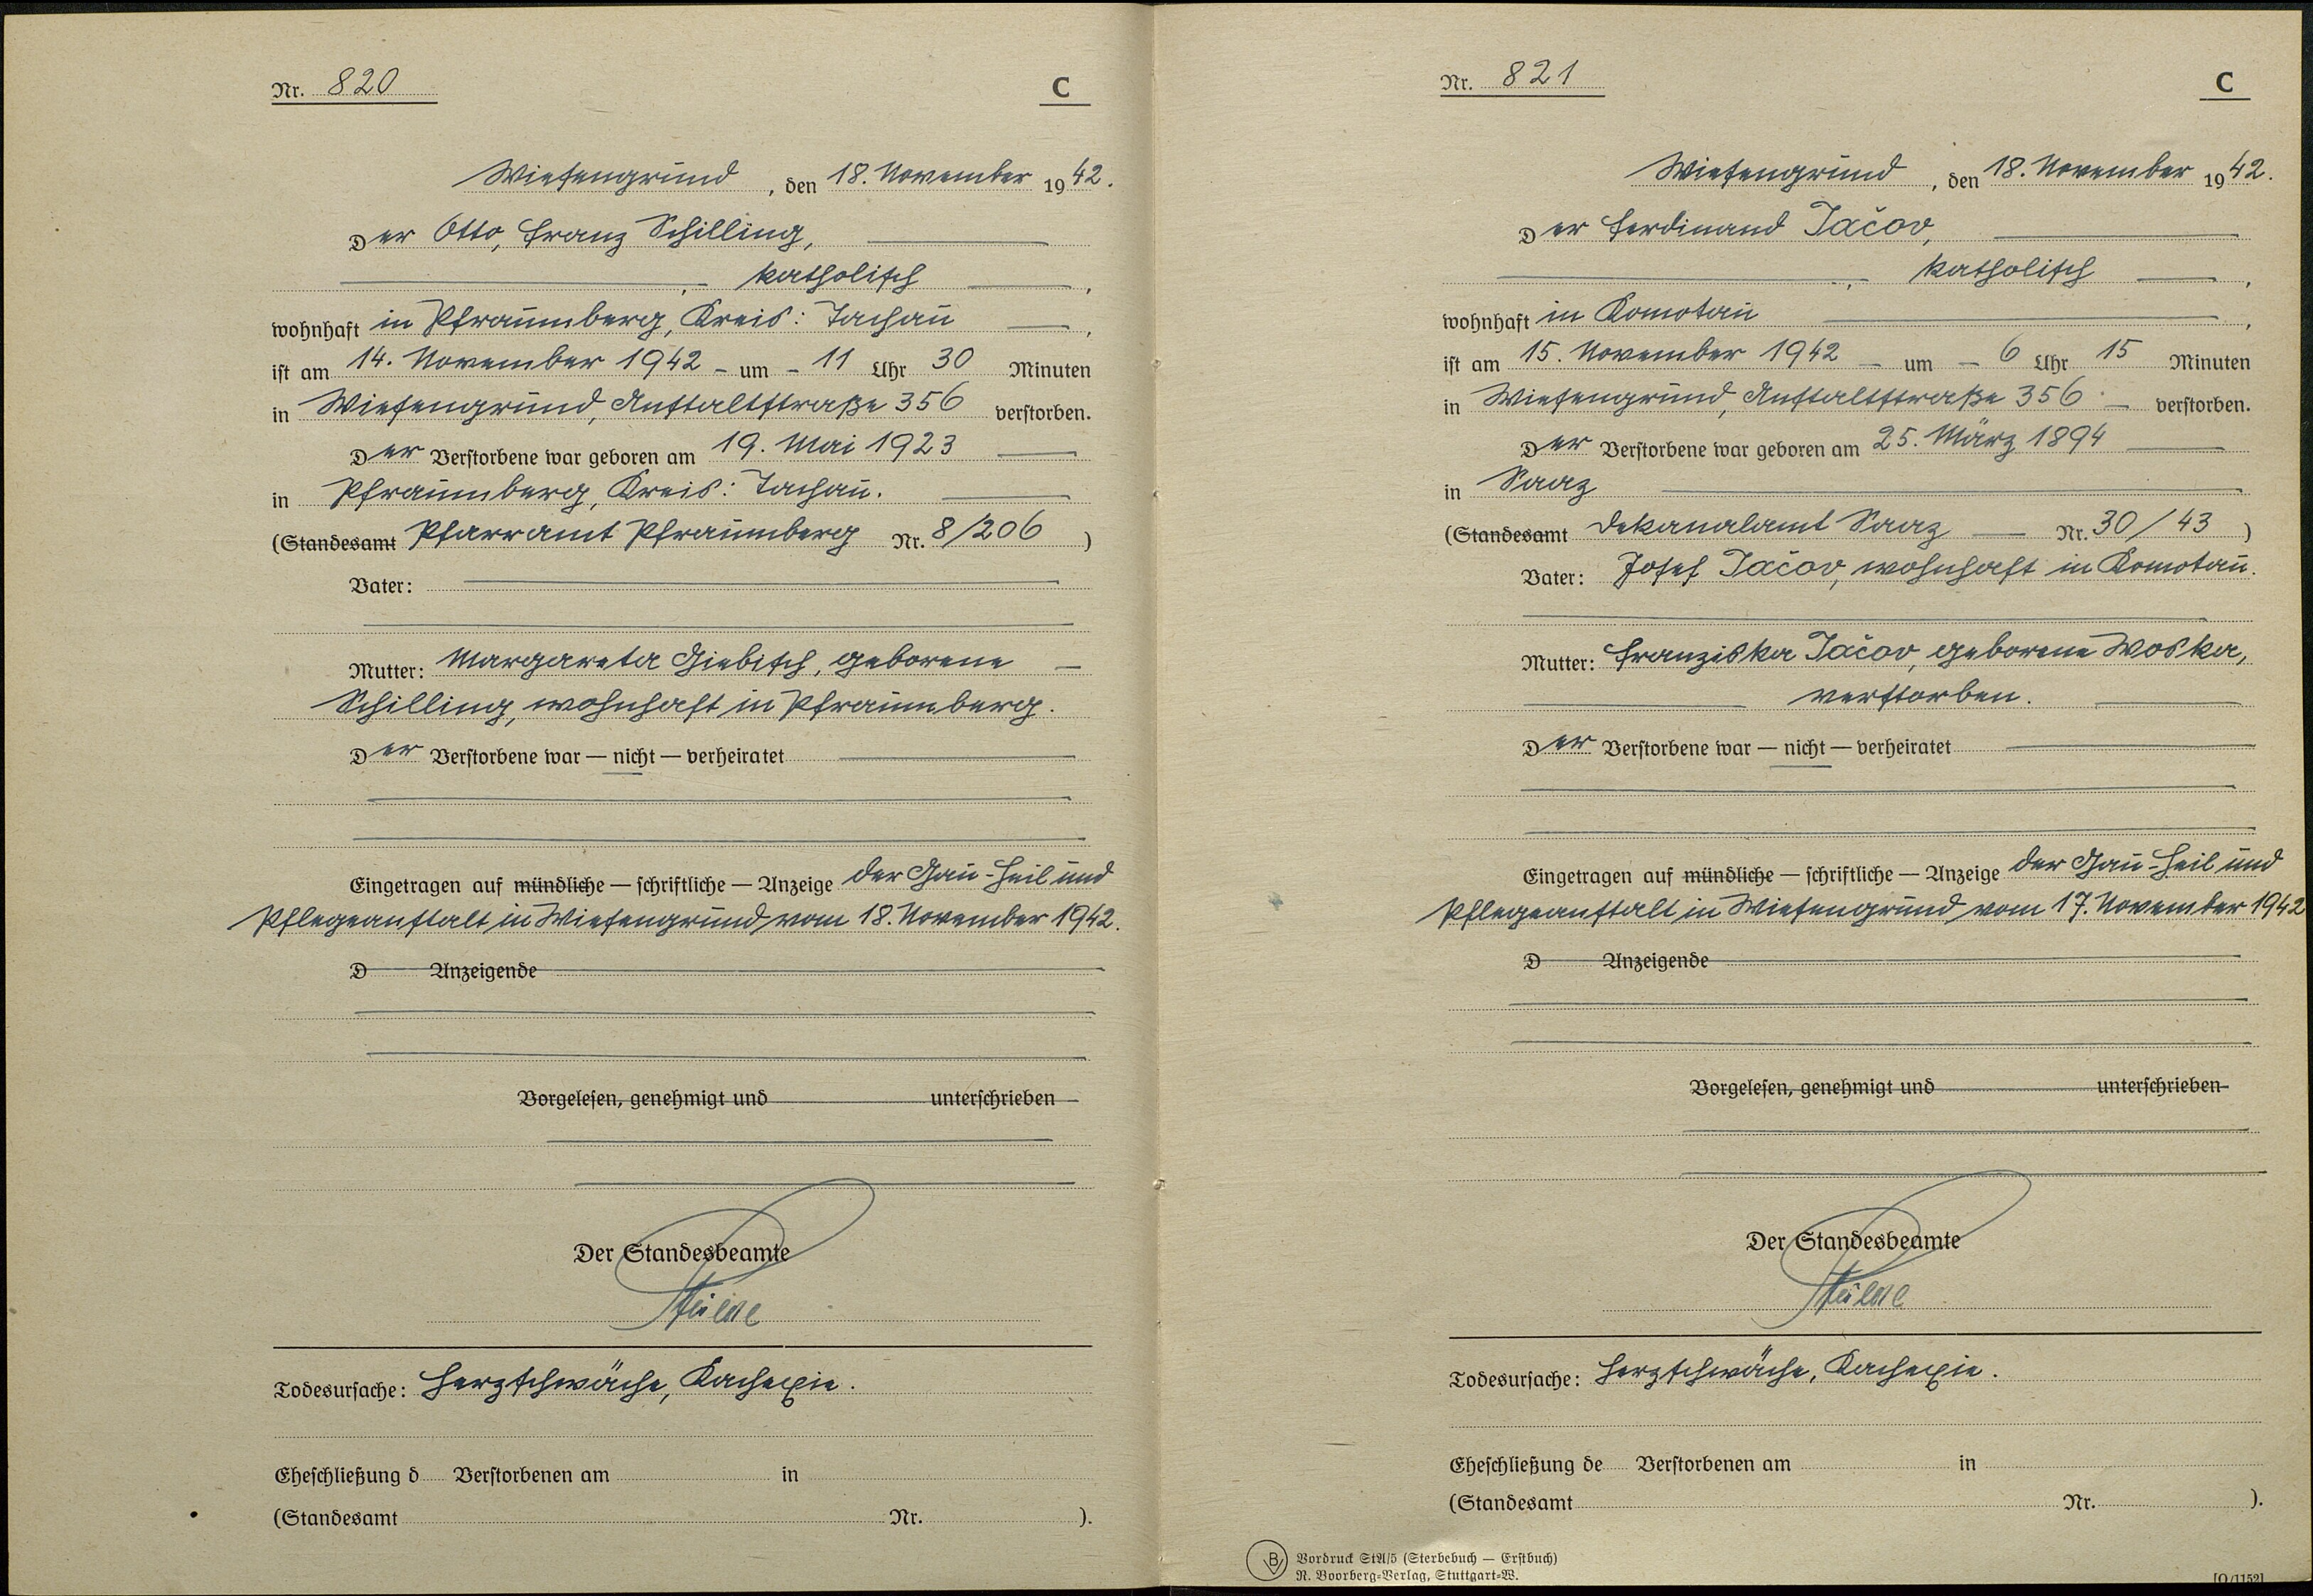 Nr. 820
C
Wiesengrund, den 18. November 1942.
Der Otto, Franz Schilling,
katholisch,
wohnhaft in Pfraumberg, Kreis: Tachau,
ist am 14. November 1942 - um - 11 Uhr 30 Minuten
in Wiesengrund, Anstaltstraße 356 verstorben.
Der Verstorbene war geboren am 19. Mai 1923
in Pfraumberg, Kreis: Tachau.
(Standesamt Pfarramt Pfraumberg Nr. 8/206)
Vater:
Mutter: Margareta Giebisch, geborene
Schilling, wohnhaft in Pfraumberg.
Der Verstorbene war — nicht — verheiratet
Eingetragen auf mündliche — schriftliche — Anzeige der Gau-Heil und
Pflegeanstalt in Wiesengrund vom 18. November 1942.
D Anzeigende
Vorgelesen, genehmigt und unterschrieben
Der Standesbeamte
Todesursache: Herzschwäche, Kachexie.
Eheschließung d Verstorbenen am in
(Standesamt Nr. ).
Nr. 821
C
Wiesengrund, den 18. November 1942.
Der Ferdinand Jačov,
katholisch,
wohnhaft in Komotau,
ist am 15. November 1942 - um - 6 Uhr 15 Minuten
in Wiesengrund, Anstaltstraße 356 - verstorben.
Der Verstorbene war geboren am 25. März 1894
in Saaz
(Standesamt Dekanalamt Saaz Nr. 30/43)
Vater: Josef Jačov, wohnhaft in Komotau.
Mutter: Franziska Jačov, geborene Woska,
verstorben.
Der Verstorbene war — nicht — verheiratet
Eingetragen auf mündliche — schriftliche — Anzeige der Gau-Heil und
Pflegeanstalt in Wiesengrund vom 17. November 1942
D Anzeigende
Vorgelesen, genehmigt und unterschrieben
Der Standesbeamte
Todesursache: Herzschwäche, Kachexie.
Eheschließung de Verstorbenen am in
(Standesamt Nr. ).
B Vordruck StA/5 (Sterbebuch — Erstbuch)
R. Boorberg-Verlag, Stuttgart-W.